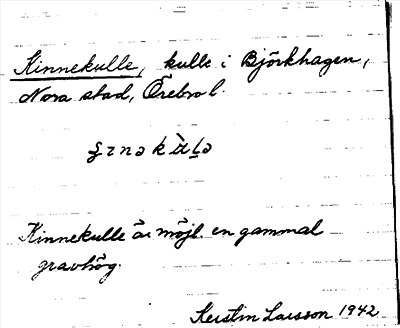 Kinnekulle, kulle i Björkhagen,
Nora stad, Örebro l.
Kinnekulle är möjl. en gammal
gravhög.
Kerstin Larsson 1942